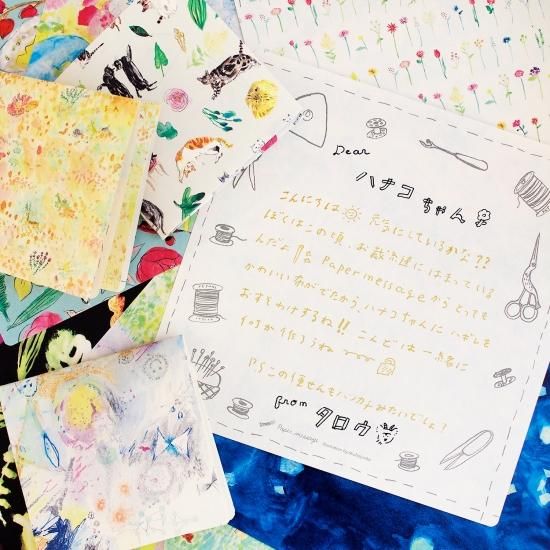 Dear
ハナコちゃん
こんにちは 元気にしているかな??
ぼくはこの頃、お裁縫にはまっている
んだよ Paper messageからとっても
かわいい布がでたから、ハナコちゃんにハギレを
おすそわけするね!! こんどは一緒に
何か作ろうね
P.S この便せんもハンカチみたいでしょ?
from タロウ
Paper message